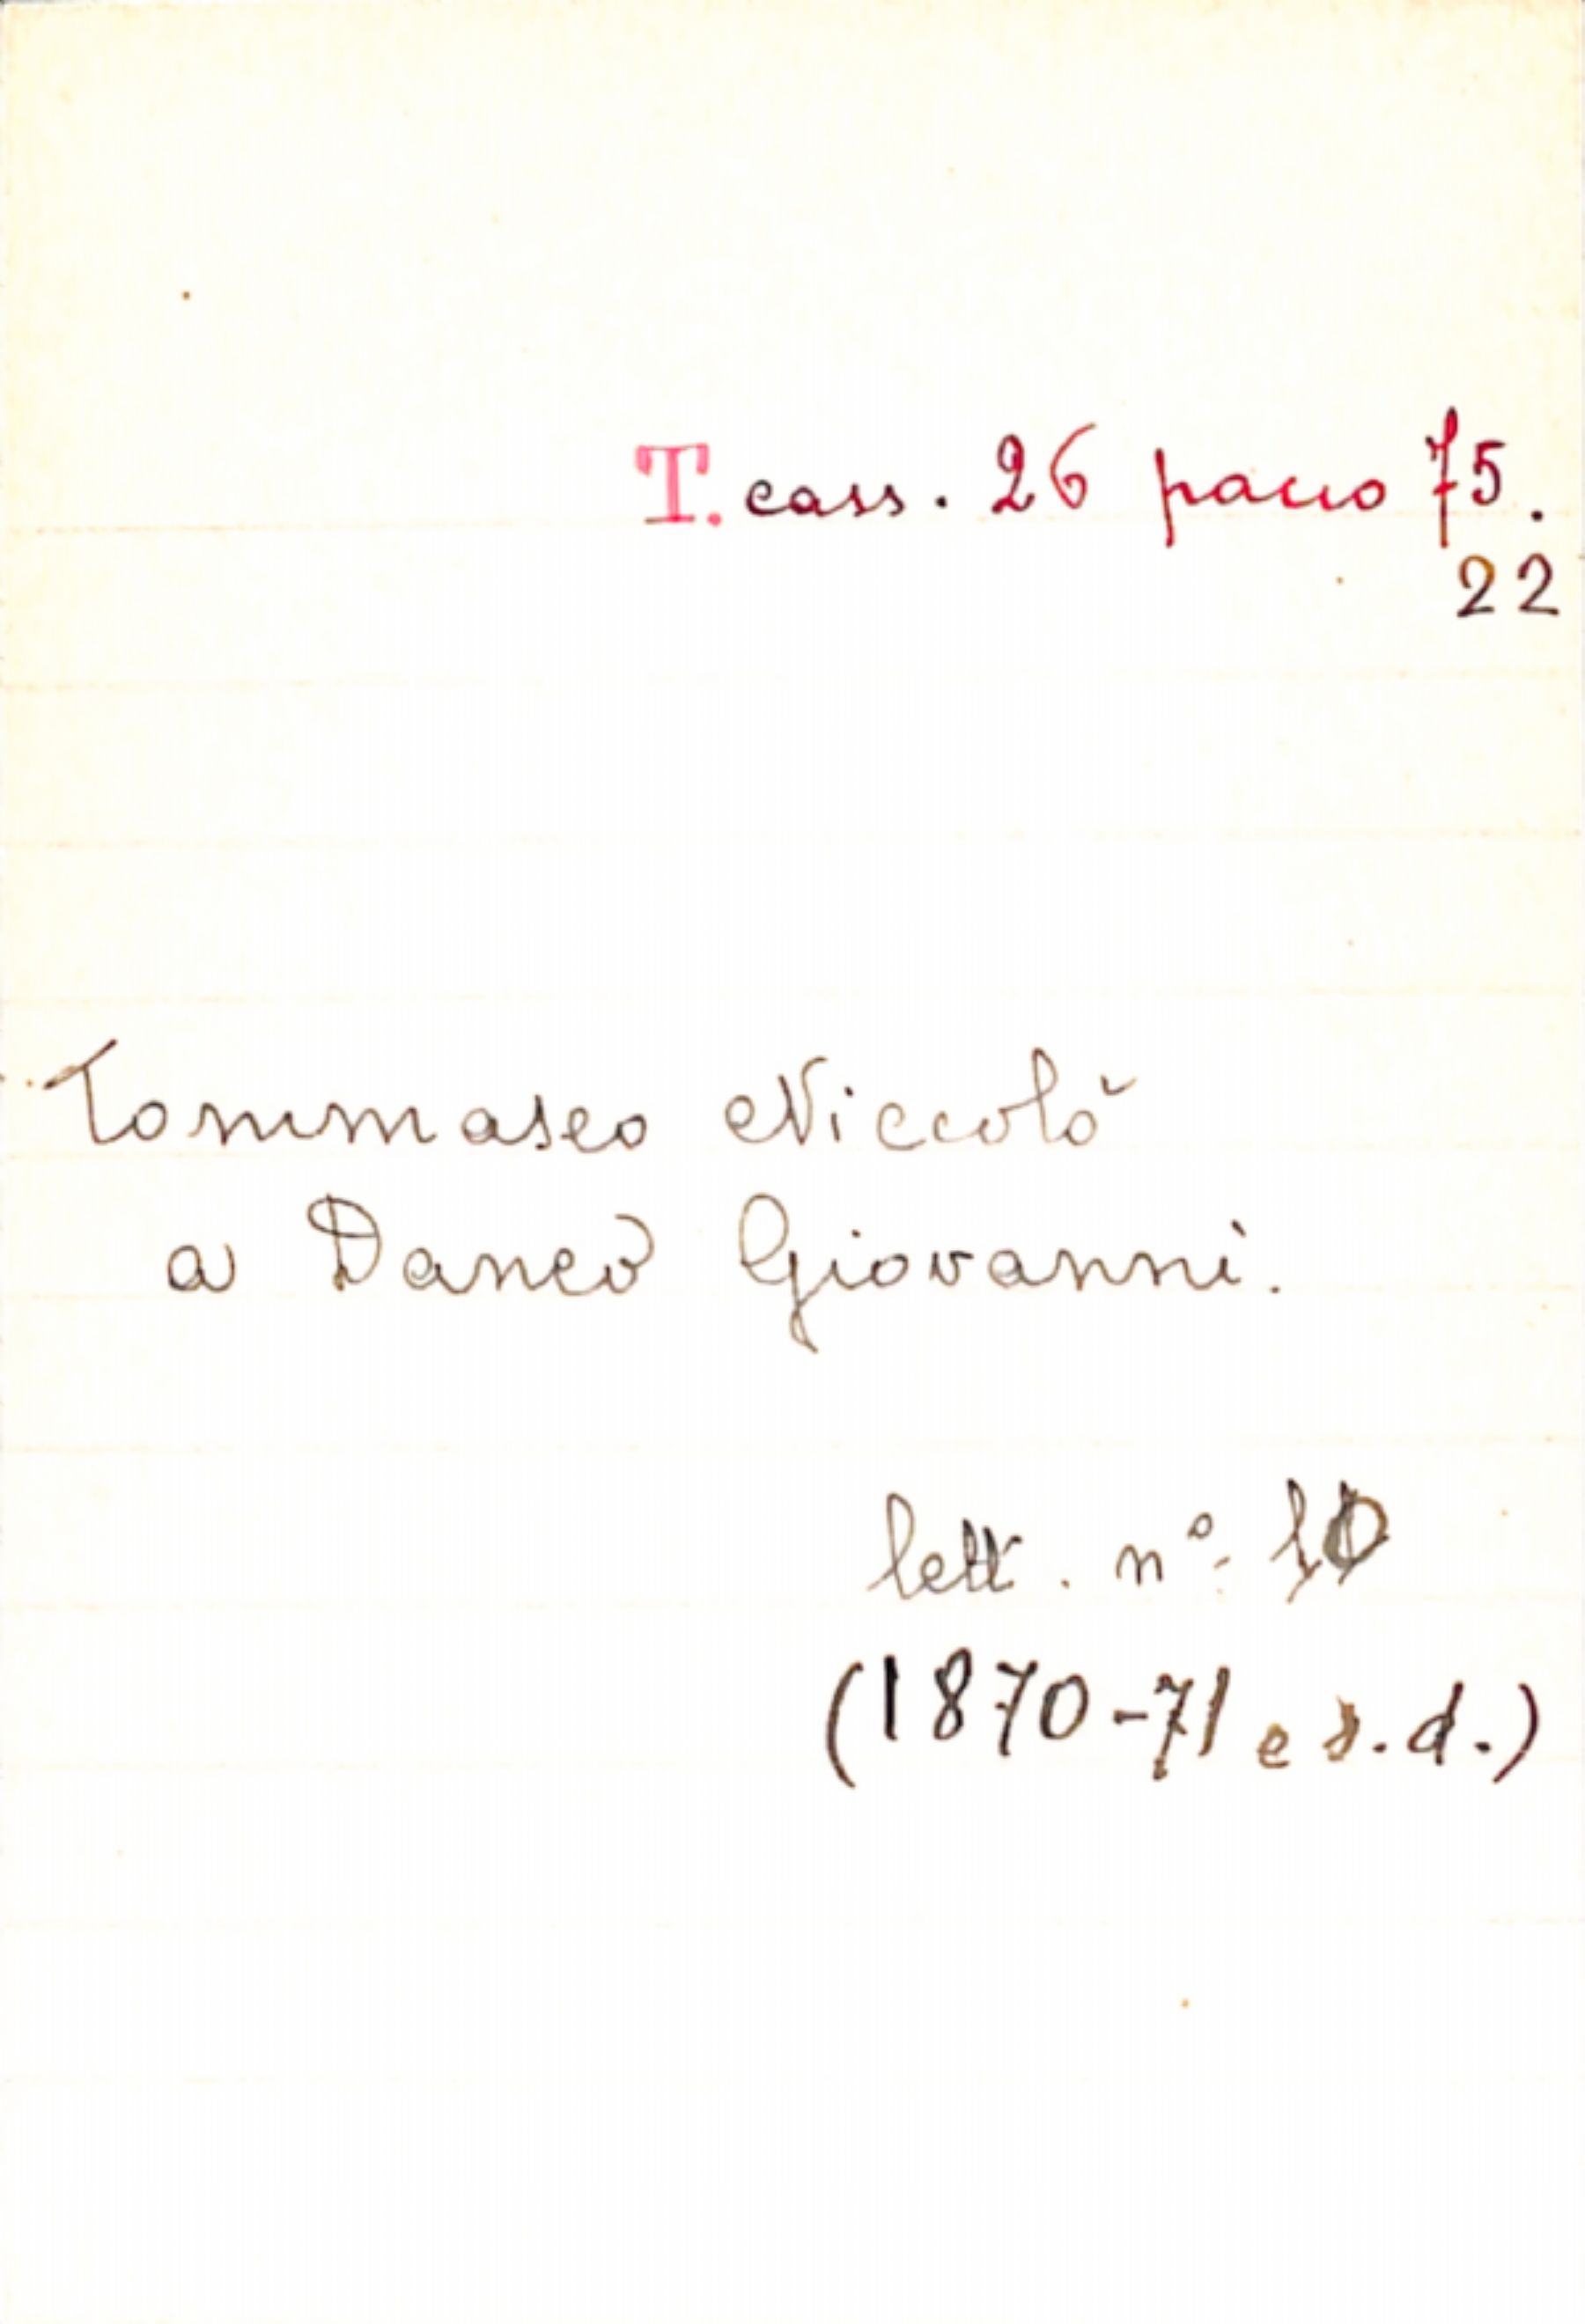 T. cass. 26 pacco 75.
22
Tommaseo Niccolò
a Daneo Giovanni.
lett. nº 10
(1870-71 e s.d.)